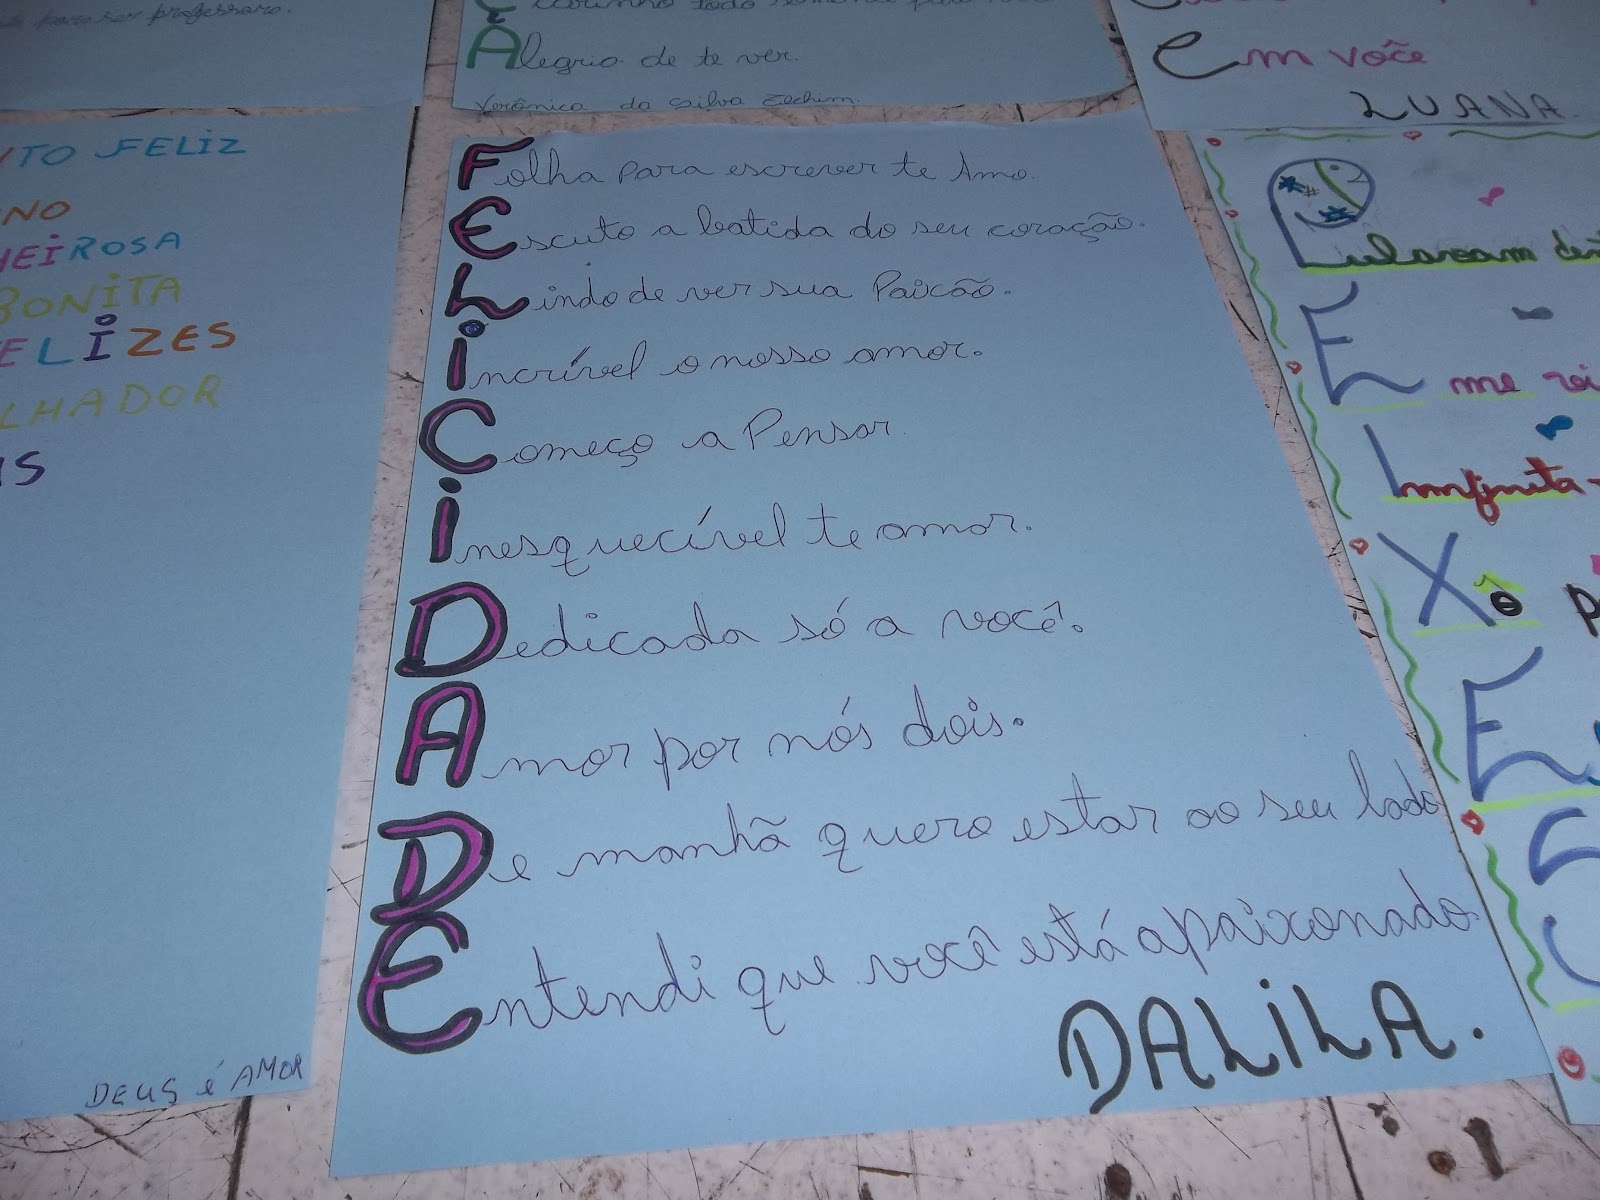 para ser professora.
Alegria de te ver.
Verônica da Silva Zechim.
Em você
LUANA.
TO FELIZ
NO
HEIROSA
BONITA
ELIZES
LHADOR
DEUS é AMOR
Folha para escrever te Amo.
Escuto a batida do seu coração.
Lindo de ver sua Paixão.
Incrível o nosso amor.
Começo a Pensar
Inesquecível te amor.
Dedicada só a você.
Amor por nós dois.
De manhã quero estar ao seu lado
Entendi que você está apaixonado.
DALILA.
Pularam
E
me
Infinita-
Xô
E